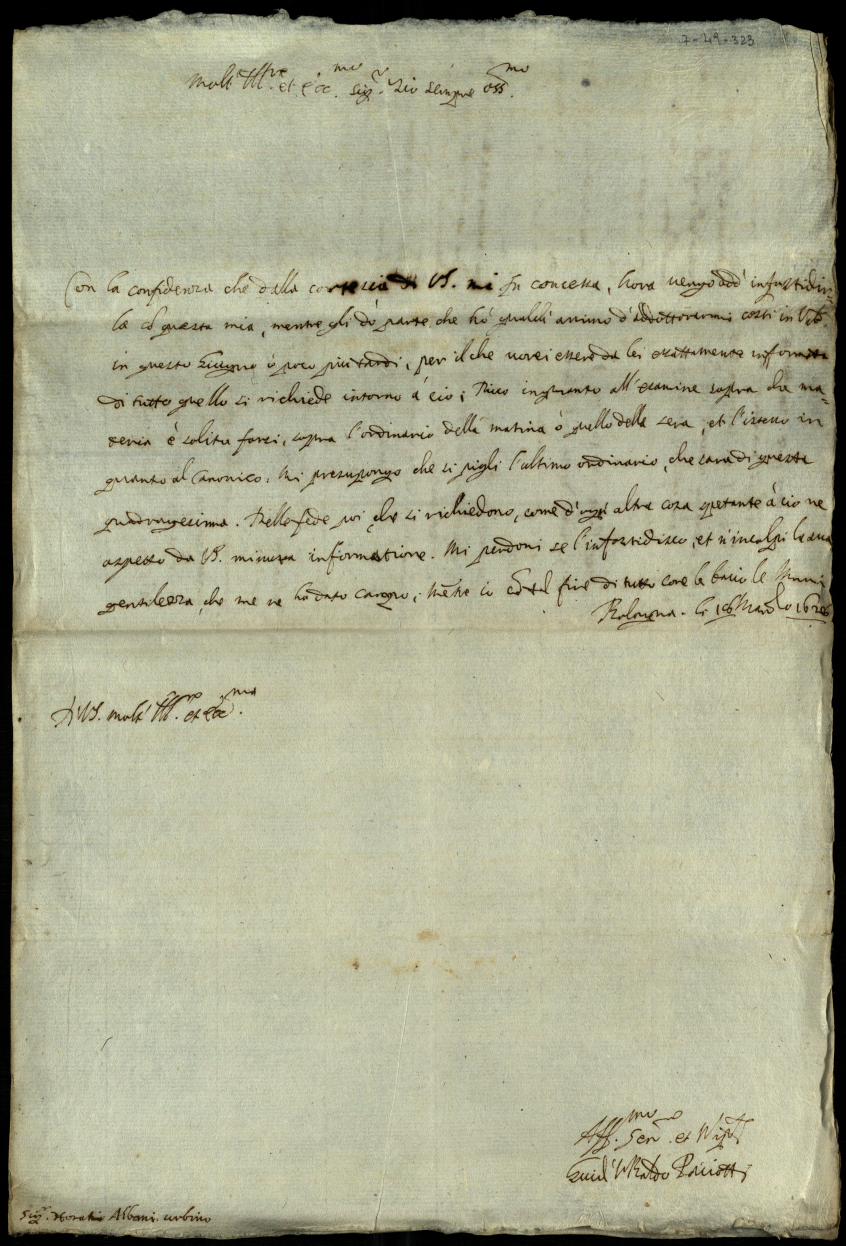 7-49-323
Molt' Ill.re et ecc.mo Sig.r Zio sempre oss.mo
Con la confidenza che dalla cortesia di VS. mi fu concessa, hora vengo ad' infastidir-
la cō questa mia, mentre gli dò parte, che hò qualch' animo d'addottorarmi costi in Urb.
in questo Giugno ò poco più tardi, per il che vorei essere da lei esattamente informato
di tutto quello si richiede intorno à ciò; Prico inquanto all'examine sopra che ma-
teria è solito farsi, sopra l'ordinario della matina ò quello della sera, et l'istesso in
quanto al Canonico. Mi presupongo che si pigli l'ultimo ordinario, che sarà di questa
quadragesima. Delle fede poi, che si richiedono, come d'ogni altra cosa spetante à ciò ne
aspetto da VS. minuta informatione. Mi perdoni se l'infastidisco, et n'incolpi la sua
gentilezza, che me ne ha dato carigo; mētre io cō tal fine di tutto core le bacio le Mani
Bologna. li Marzo
D' VS. molt' Ill.re et ecc.ma
Aff.mo Ser.re et Nip.te
Guid' Ubaldo Paciotti
Sig.r Horatio Albani. urbino